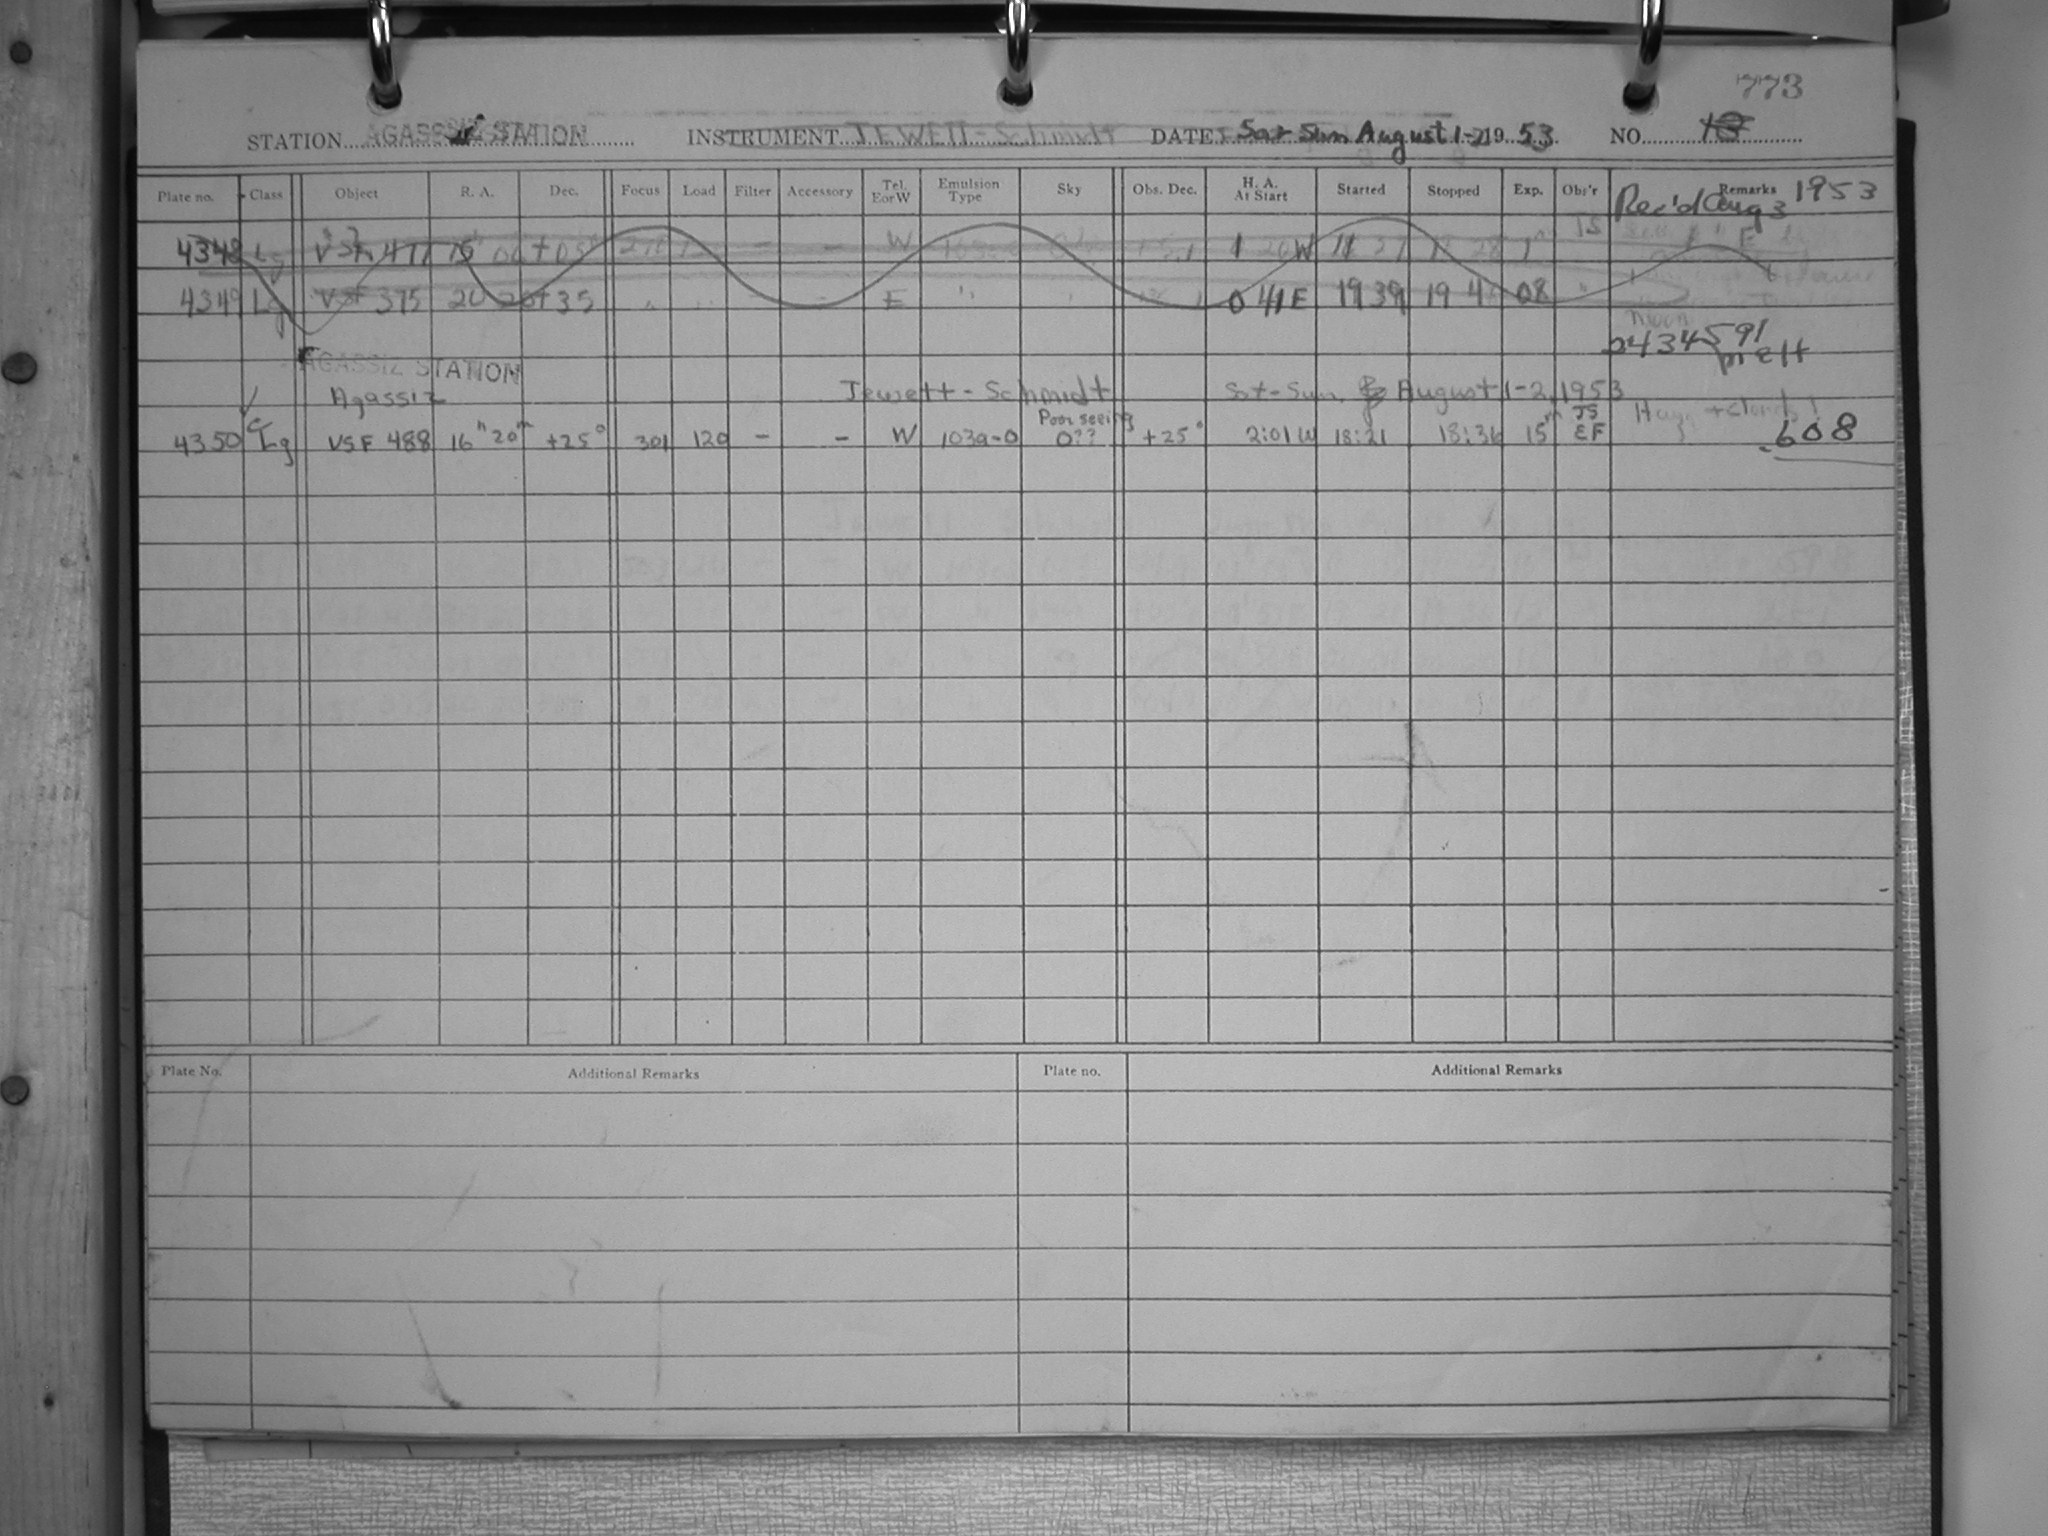 773
STATION AGASSIZ STATION INSTRUMENT JEWETT-Schmidt DATE Sat-Sun August 1-2 19 53. NO. 13
Plate no. Class Object R. A. Dec. Focus Load Filter Accessory Tel. EorW Emulsion Type Sky Obs. Dec. H. A. At Start Started Stopped Exp. Obs'r Remarks
Rec'd Aug 3 1953
4348 Lg VSF 411 W JS
4349 Lg VSF 375 20 20 +35 - E " 0 41E 19 39 19 4 08 "
Moon
2434591
AGASSIZ STATION
Agassiz Jewett-Schmidt Sat-Sun. August 1-2, 1953
4350 Lg VSF 488 16h 20m +25° 301 120 - - W 103a-O Poor seeing 0?? +25° 2:01 W 18:21 18:36 15m JS EF Haze + clouds! .608
Plate No. Additional Remarks Plate no. Additional Remarks